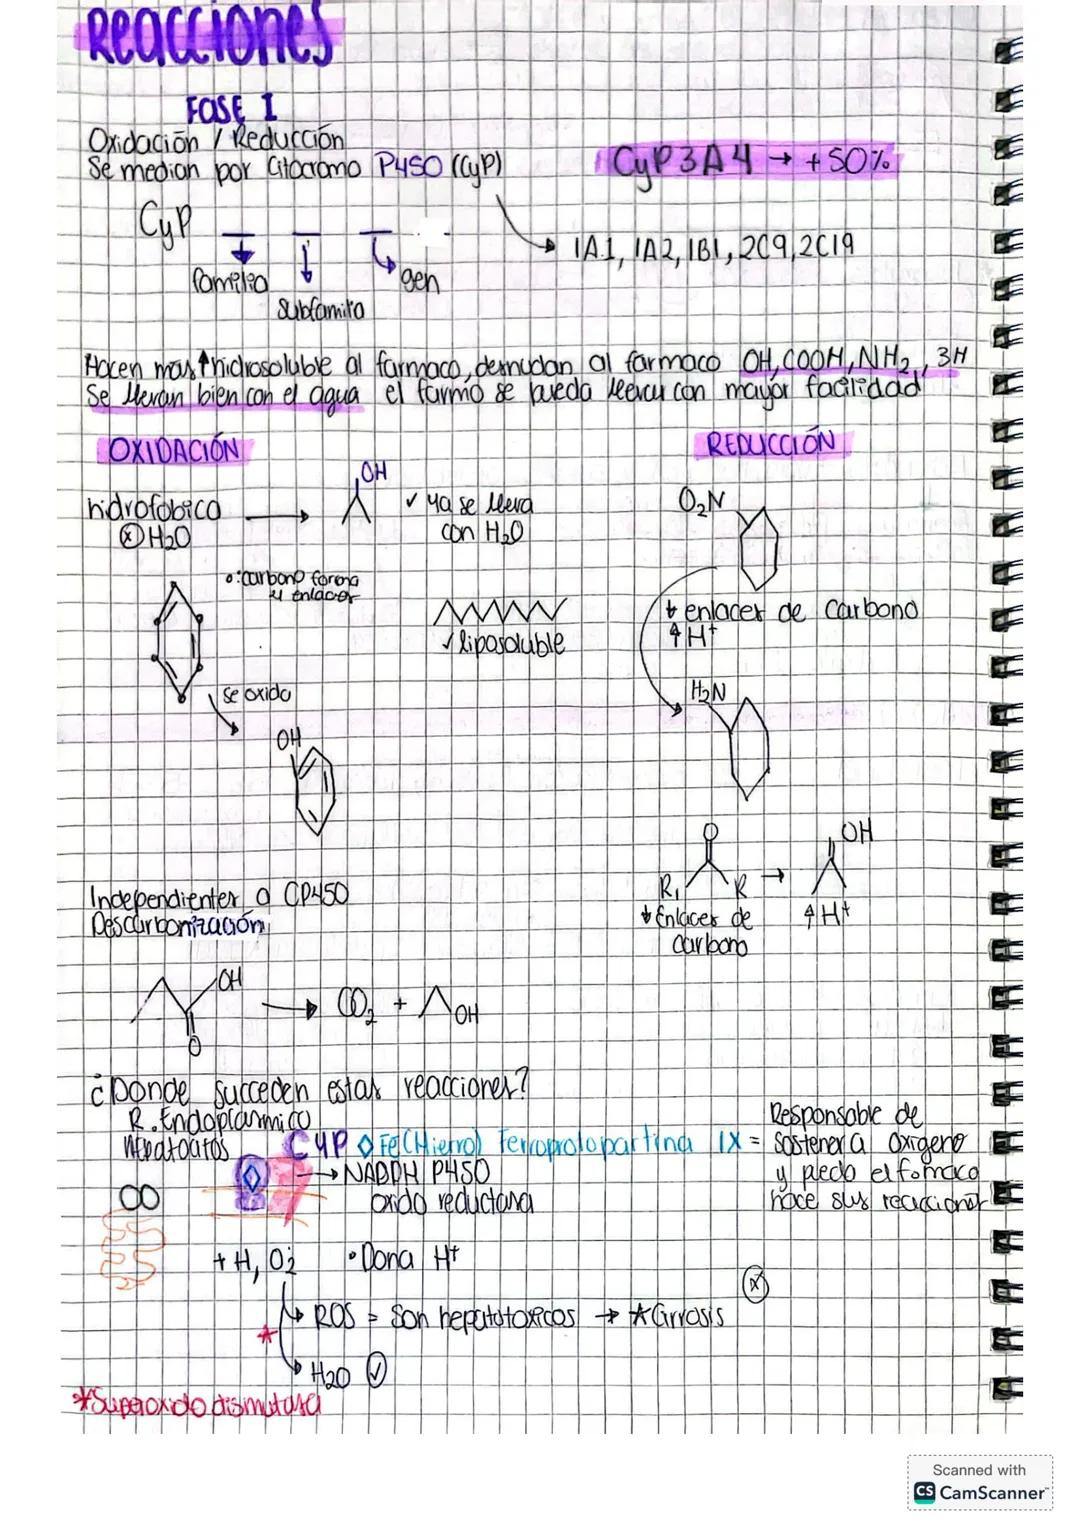 Reacciones
FASE I
Oxidación / Reducción
Se median por Citocromo P450 (CyP)
CyP3A4 → +50%
CyP
1A1, 1A2, 1B1, 2C9, 2C19
familia
gen
Subfamila
Hacen mas ↑hidrosoluble al farmaco, desnudan al farmaco OH, COOH, NH2, 3H
Se llevan bien con el agua el farmo se pueda llevar con mayor facilidad
OXIDACIÓN
REDUCCIÓN
hidrofobico
ⓧ H2O
OH
✓ ya se lleva
con H2O
O2N
o: carbono forma
4 enlaces
✓ liposoluble
↓ enlaces de carbono
↑ H+
se oxida
H2N
OH
O
OH
R,
R
→
Independientes a CP450
Descarbonización
↓ Enlaces de
carbono
↑ H+
OH
O
→ CO2 + OH
¿Donde succeden estas reacciones?
R. Endoplasmico
Hepatocitos
CYP ◇ Fe(Hierro) Ferroprotopartina IX =
Responsable de
sostener a oxigeno
y puedo el farmaco
hace sus reacciones
→ NADDH P450
oxido reductasa
+ H, O2
• Dona H+
→ ROS = Son hepatotoxicos → *Cirrosis ⓧ
*
→ H2O ✓
*Superoxido dismutasa
Scanned with
CS CamScanner